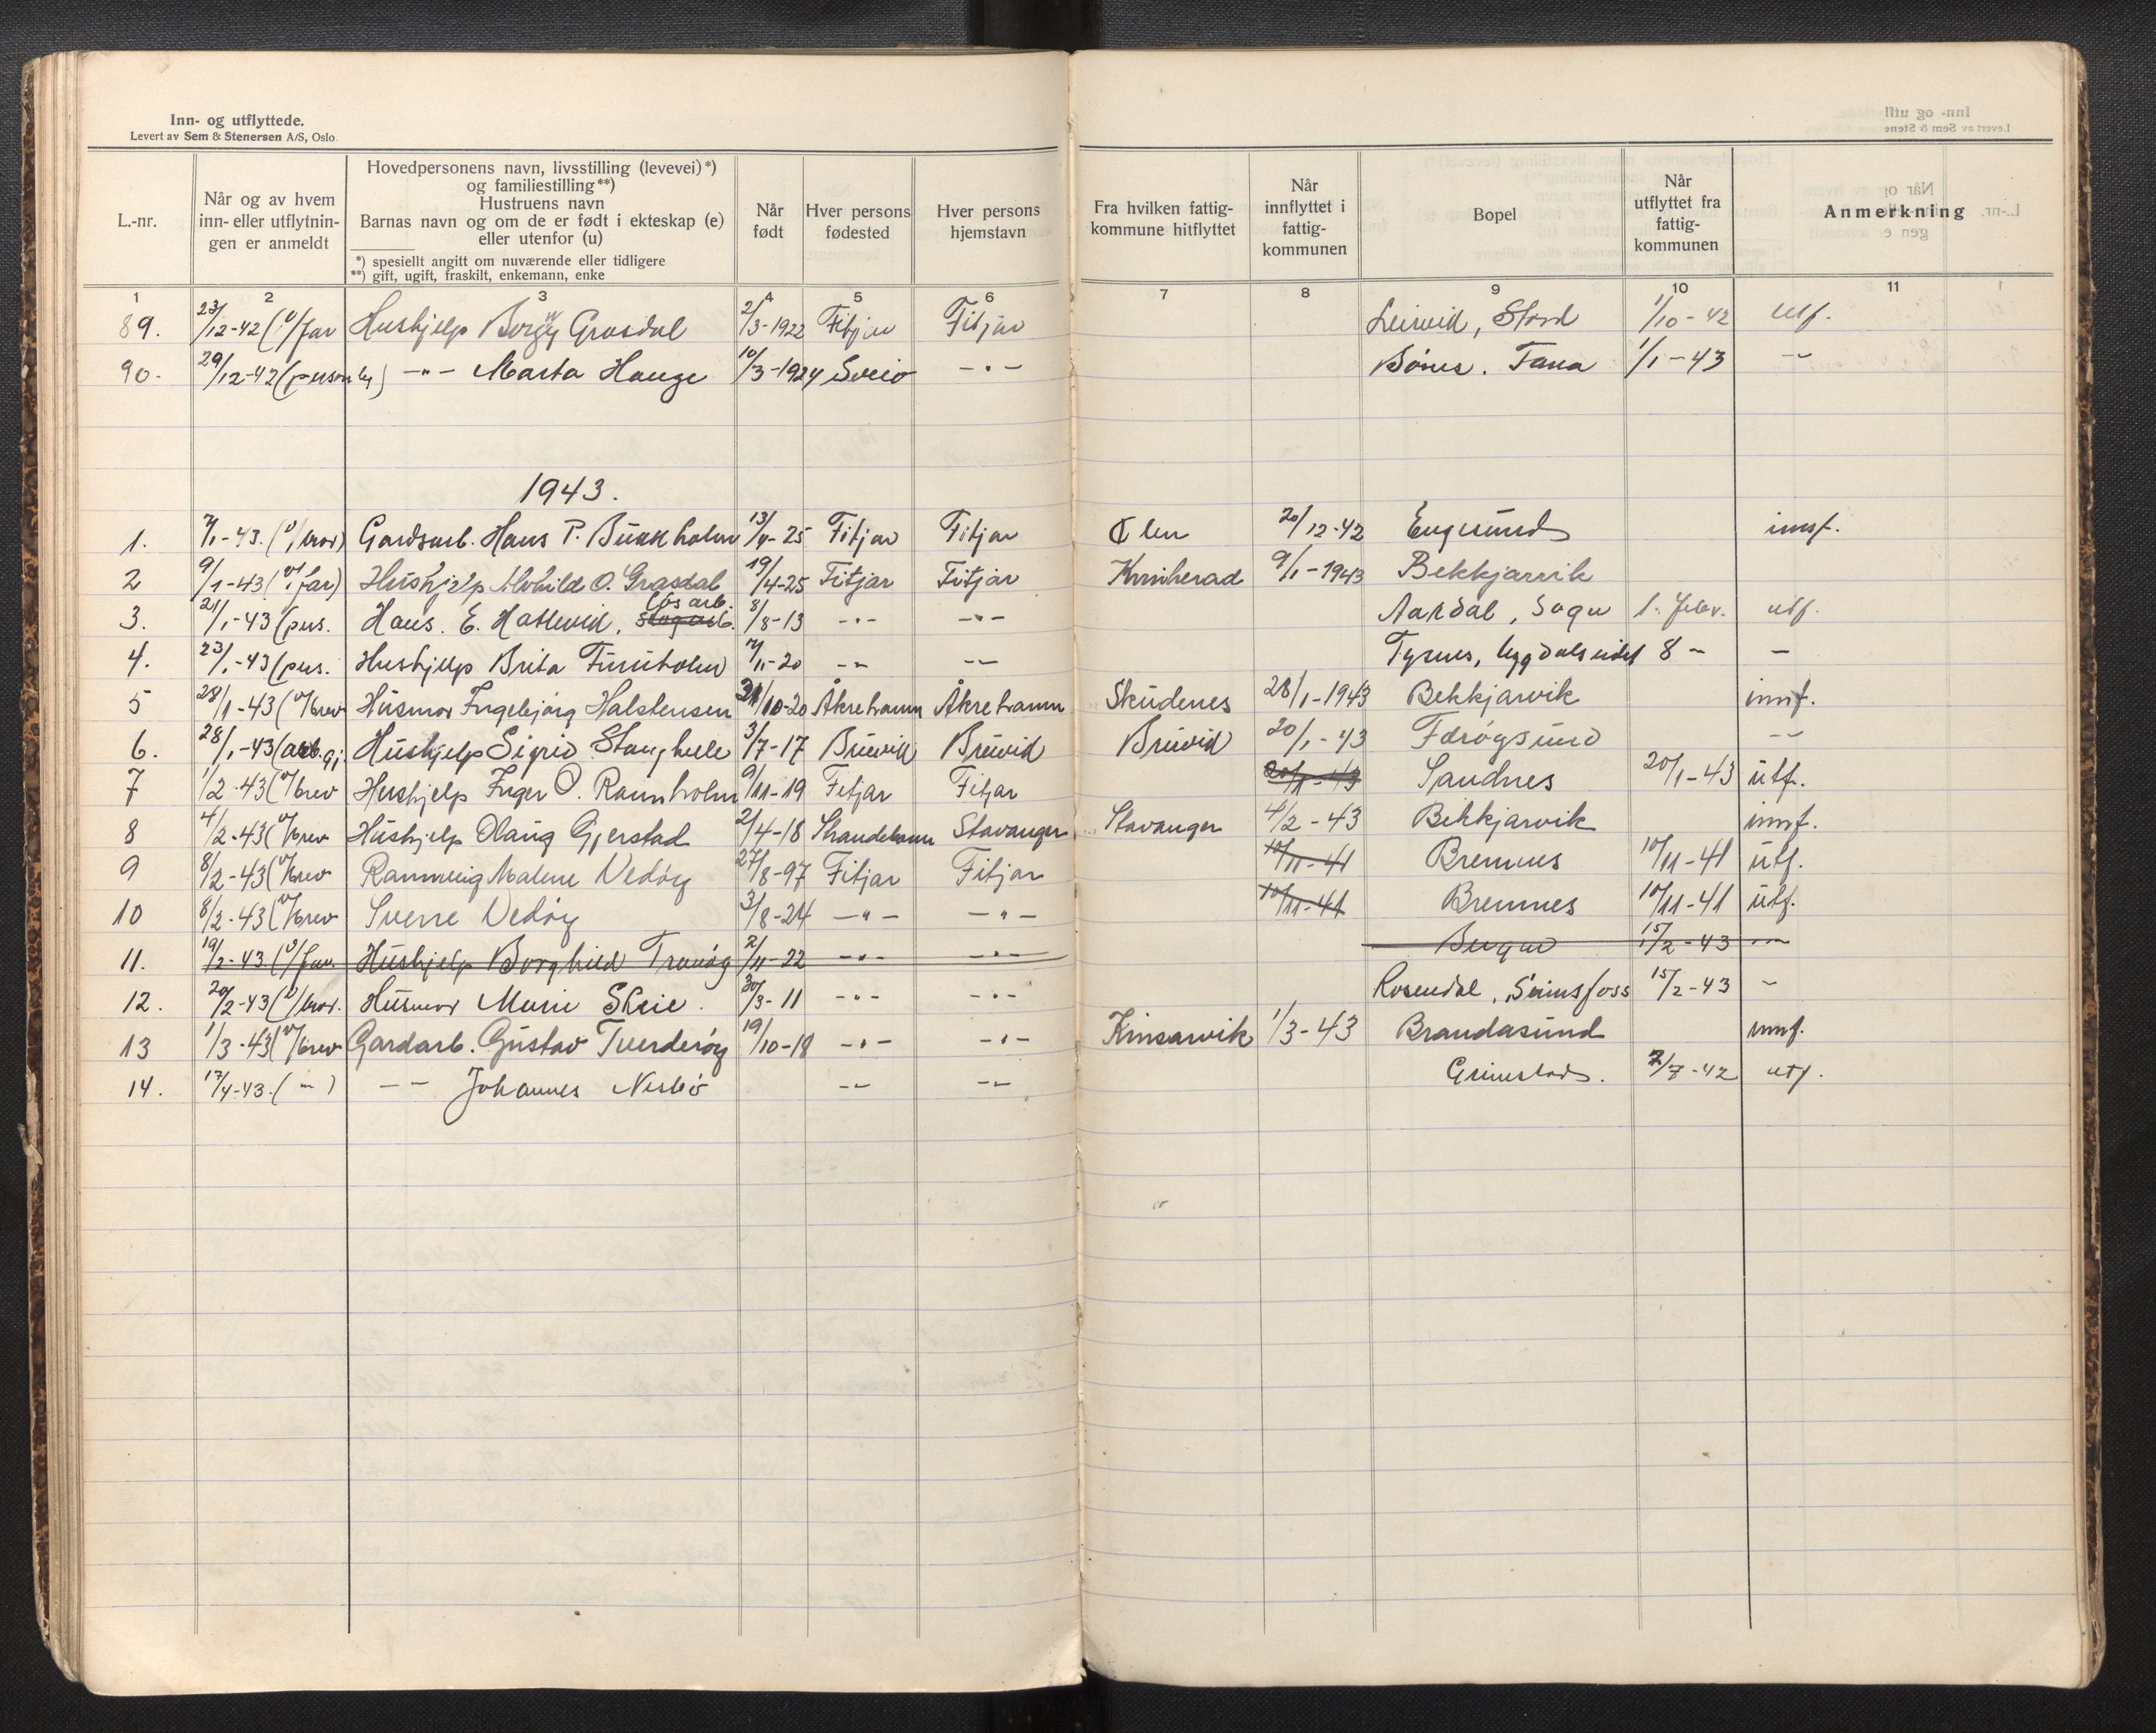 Inn- og utflyttede.
Levert av Sem & Stenersen A/S, Oslo.
L.-nr.
Når og av hvem inn- eller utflytnin- gen er anmeldt
Hovedpersonens navn, livsstilling (levevei)*)
og familiestilling**)
Hustruens navn
Barnas navn og om de er født i ekteskap (e)
eller utenfor (u)
*) spesiellt angitt om nuværende eller tidligere
**) gift, ugift, fraskilt, enkemann, enke
Når født
Hver persons fødested
Hver persons hjemstavn
Fra hvilken fattig- kommune hitflyttet
Når innflyttet i fattig- kommunen
Bopel
Når utflyttet fra fattig- kommunen
Anmerkning
1 2 3 4 5 6 7 8 9 10 11
89. 23/12-42 (v/far Hushjelp Borgny Grasdal 2/3-1922 Fitjar Fitjar Leirvik, Stord 1/10-42 utf.
90. 29/12-42 (personleg) -"- Marta Hauge 10/3-1924 Sveio -"- Bønes. Fana 1/1-43 -"-
1943.
1. 7/1-43. (v/bror) Gardsarb. Hans P. Bukkholm 13/4-25 Fitjar Fitjar Ølen 20/12-42 Engesund innf.
2 9/1-43 (v/far) Hushjelp Alvhild O. Grasdal 19/4-25 Fitjar Fitjar Kvinherad 9/1-1943 Bekkjarvik
3. 21/1-43 (pers. Hans. E. Hatlevik, skogarb. løs arb. 8/8-13 -"- -"- Aardal, Sogn 1. febr. utf.
4. 23/1-43 (pers. Hushjelp Brita Furuholm 7/11-20 -"- -"- Tysnes, Uggdalseidet 8 - -
5 28/1-43 (v/brev Husmor Ingebjørg Halstensen 31/10-20 Åkrehamn Åkrehamn Skudenes 28/1-1943 Bekkjarvik innf.
6. 28/1-43 (arb.gj. Hushjelp Sigrid Stanghelle 3/7-17 Bruvik Bruvik Bruvik 20/1-43 Færøysund -"-
7 1/2-43 (v/brev Hushjelp Inger O. Ramsholm 9/11-19 Fitjar Fitjar 20/1-43 Sandnes 20/1-43 utf.
8 4/2-43 (v/brev Hushjelp Olaug Gjerstad 2/4-18 Strandebarm Stavanger Stavanger 4/2-43 Bekkjarvik innf.
9 8/2-43 (v/brev Rannveig Malene Vedøy 27/8-97 Fitjar Fitjar 10/11-41 Bremnes 10/11-41 utf.
10 8/2-43 (v/brev Sverre Vedøy 3/8-24 -"- -"- 10/11-41 Bremnes 10/11-41 utf.
11. 19/2-43 (v/far. Hushjelp Borghild Trovåg 2/11-22 -"- -"- Bergen 15/2-43 -"-
12. 20/2-43 (v/bror. Husmor Marie Skeie. 30/3-11 -"- -"- Rosendal, 15/2-43 -
13 1/3-43 (v/brev Gardarb. Gustav Tverderøy 19/10-18 -"- -"- Kinsarvik 1/3-43 Brandasund innf.
14. 17/4-43. (-"-) -"- Johannes Nesbø -"- -"- Grimstad. 2/7-42 utf.